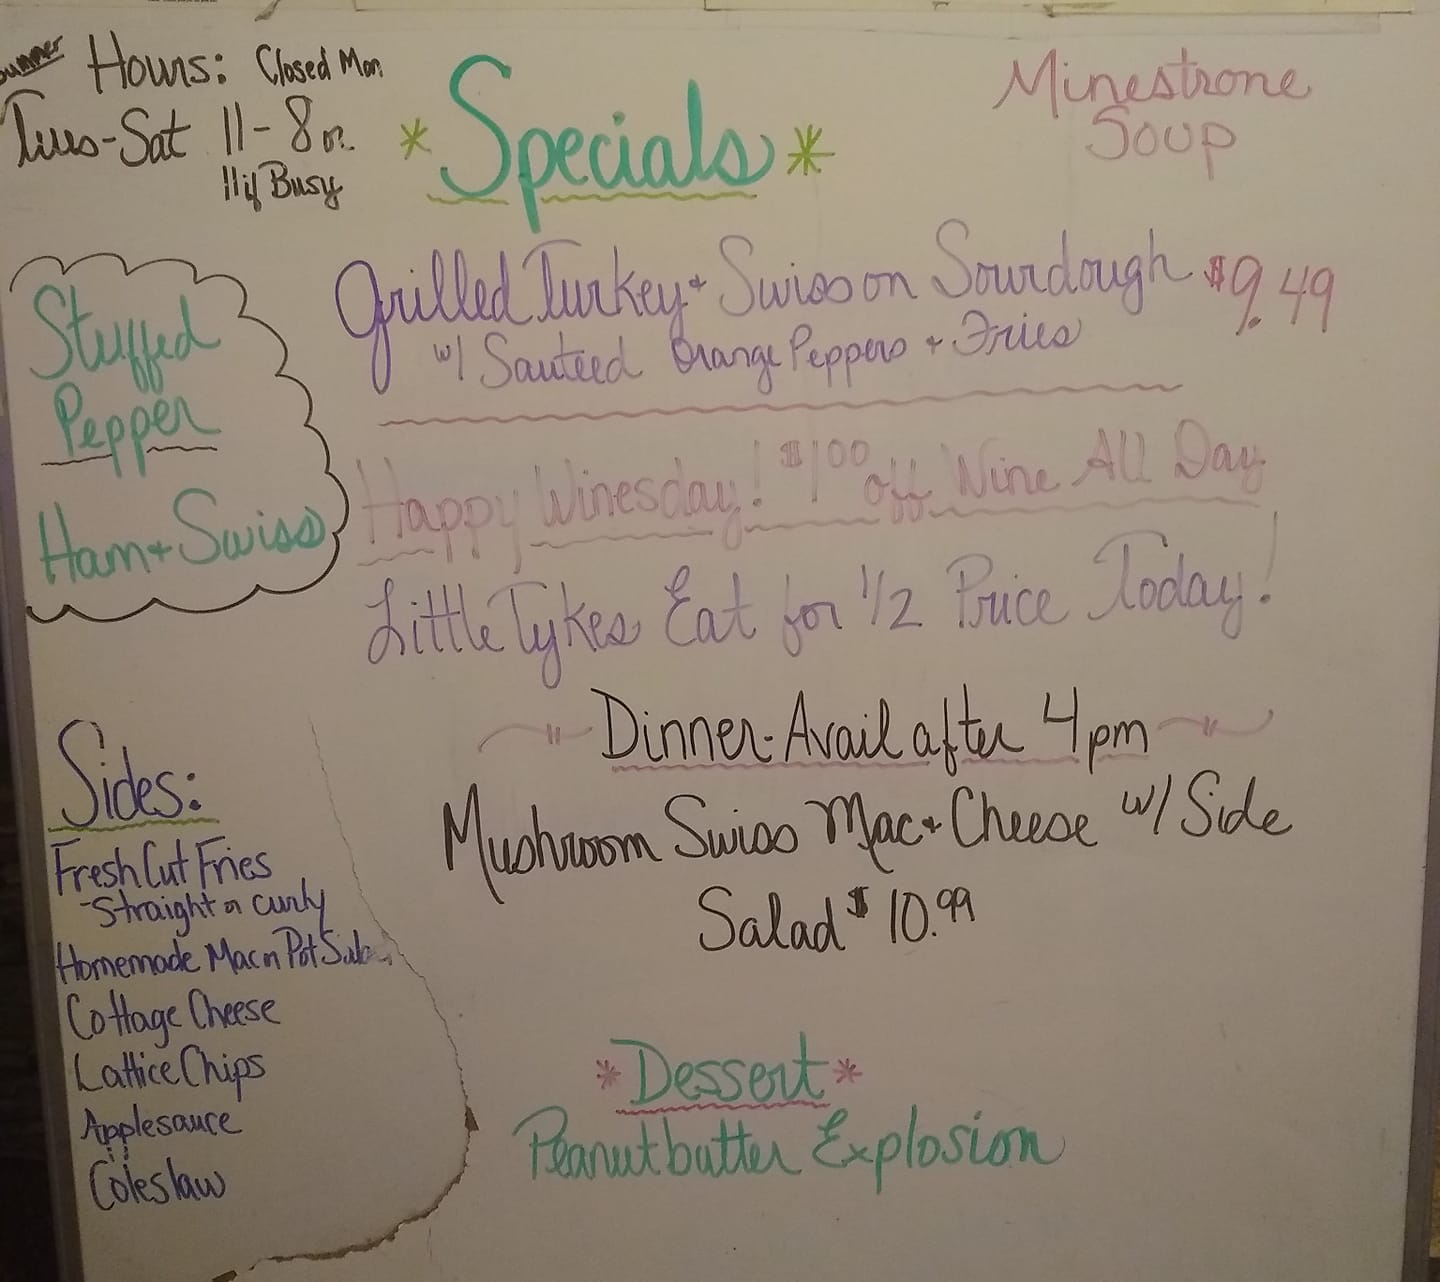 Summer Hours: Closed Mon
Tues-Sat 11-8 or
11 if Busy
*Specials*
Minestrone
Soup
Stuffed
Pepper
Ham + Swiss
Grilled Turkey + Swiss on Sourdough $9.49
w/ Sauteed Orange Peppers + Fries
Happy Winesday! $1.00 off Wine All Day
Little Tykes Eat for 1/2 Price Today!
Dinner-Avail after 4pm
Mushroom Swiss Mac + Cheese w/ Side
Salad $10.99
Sides:
Fresh Cut Fries
-Straight or curly
Homemade Mac n Pot
Cottage Cheese
Lattice Chips
Applesauce
Coleslaw
*Dessert*
Peanutbutter Explosion